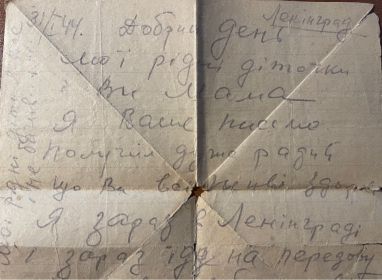 31/I 44. Добрий день Ленінград
мої рідні діточки
і Ви Мама
Я Ваше письмо
получив дуже радий
що Ви всі живі здорові
Я зараз в Ленінграді
і зараз їду на передову